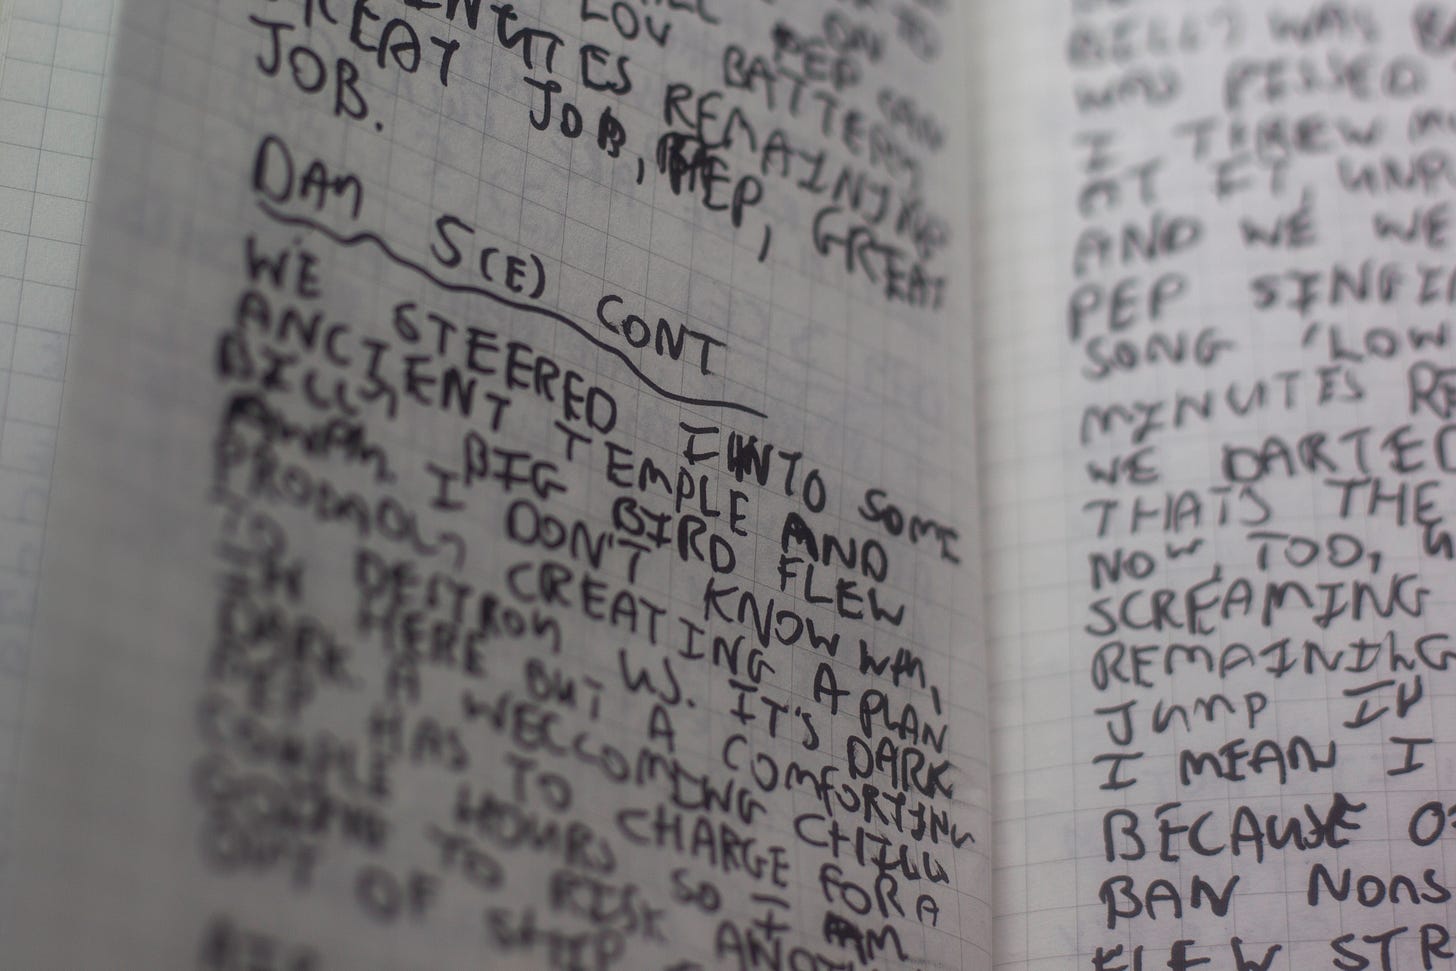 LOW BATTERY
MINUTES REMAINING
GREAT JOB, PEP, GREAT
JOB.
DAY 5(E) CONT
WE STEERED INTO SOME
ANCIENT TEMPLE AND
BILLY, BIG BIRD FLEW
AWAY. I DON'T KNOW WHY,
PROBABLY CREATING A PLAN
TO DESTROY US. IT'S DARK
IN HERE BUT A COMFORTING
DARK. A WELCOMING CHILL
PEP HAS TO CHARGE FOR A
COUPLE HOURS SO I AM
GOING TO RISK
OUT OF SHIP
BILLY WAS
WAS PISSED
I THREW
AT IT,
AND WE WE
PEP SINGI
SONG 'LOW
MINUTES RE
WE DARTED
THATS THE
NOW, TOO,
SCREAMING
REMAINING
JUMP IN
I MEAN I
BECAUSE OF
BAN NONS
FLEW STR